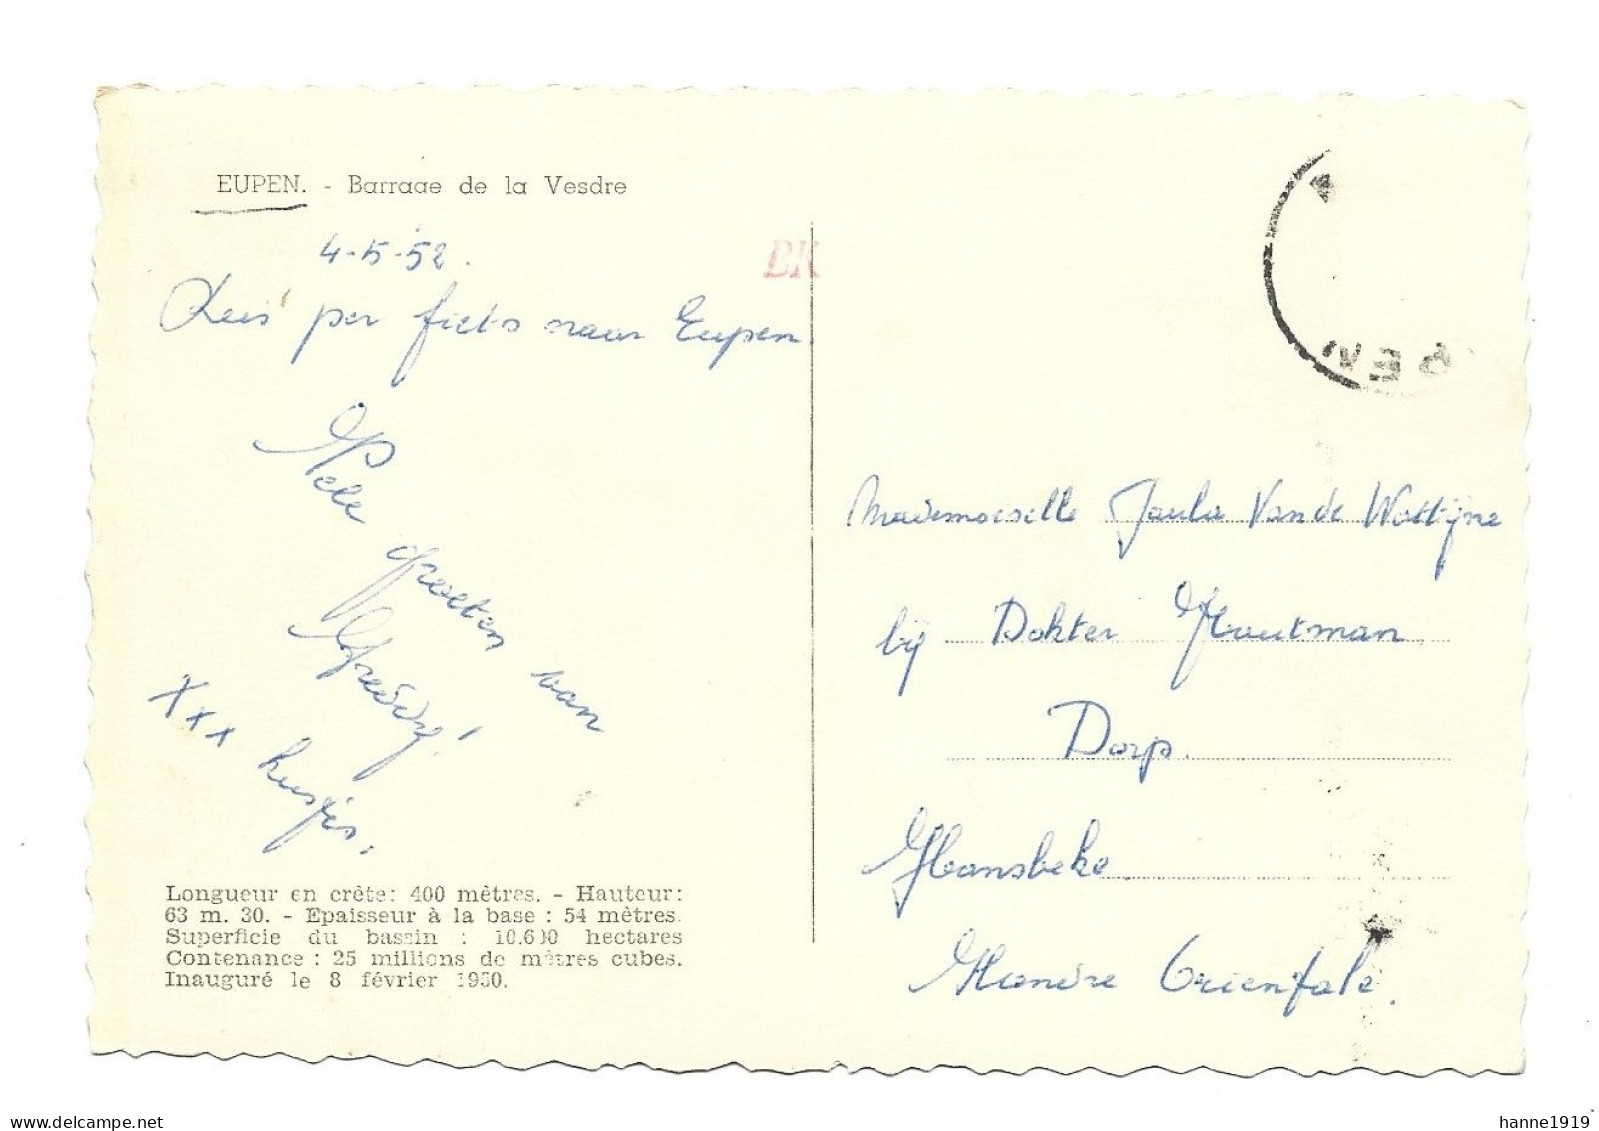 EUPEN. - Barrage de la Vesdre
4-5-52.
Reis per fiets naar Eupen.
Vele groeten van
Freddy!
xxx kusjes.
Longueur en crête: 400 mètres. - Hauteur:
63 m. 30. - Epaisseur à la base : 54 mètres.
Superficie du bassin : 10.600 hectares
Contenance : 25 millions de mètres cubes.
Inauguré le 8 février 1950.
BK
Mademoiselle Paula Van de Wattyne
bij Dokter Houtman
Dorp.
Hansbeke.
Flandre Orientale.
hanne1919